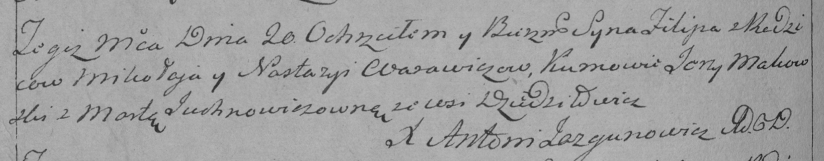 Tegiż Mca Dnia 20. Ochrzciłem y Birzm. Syna Filipa z Rodzi
cow Mikołaja y Nastazyi Warawiczow, Kumowie Jozy Makow
ski z Martą Juchnowiczowną ze wsi Dziedziłowicz
X Antoni Jazgunowicz